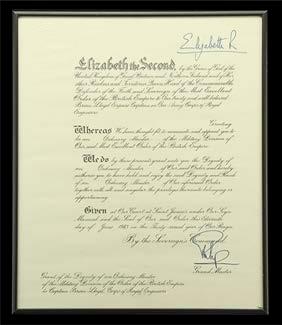 Elizabeth R
Elizabeth the Second, by the Grace of God of the
United Kingdom of Great Britain and Northern Ireland and of Her
other Realms and Territories Queen, Head of the Commonwealth,
Defender of the Faith and Sovereign of the Most Excellent
Order of the British Empire to Our trusty and well beloved
Brian Lloyd Captain in Our Corps of Royal
Engineers
Greeting
Whereas We have thought fit to nominate and appoint you to be
an Ordinary Member of the Military Division of
Our said Most Excellent Order of the British Empire
We do by these presents grant unto you the Dignity of
an Ordinary Member of Our said Order and hereby
authorise you to have hold and enjoy the said Dignity and Rank
of an Ordinary Member of Our aforesaid Order
together with all and singular the privileges thereunto belonging or
appertaining
Given at Our Court at Saint James's under Our Sign
Manual and the Seal of Our said Order this
day of June 1983 in the year of Our Reign
By the Sovereign's Command.
Grand Master
Grant of the Dignity of an Ordinary Member
of the Military Division of the Order of the British Empire
to Captain Brian Lloyd, Corps of Royal Engineers